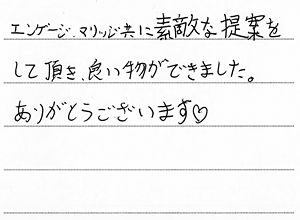 エンゲージ、マリッジ共に素敵な提案を
して頂き、良い物ができました。
ありがとうございます♡